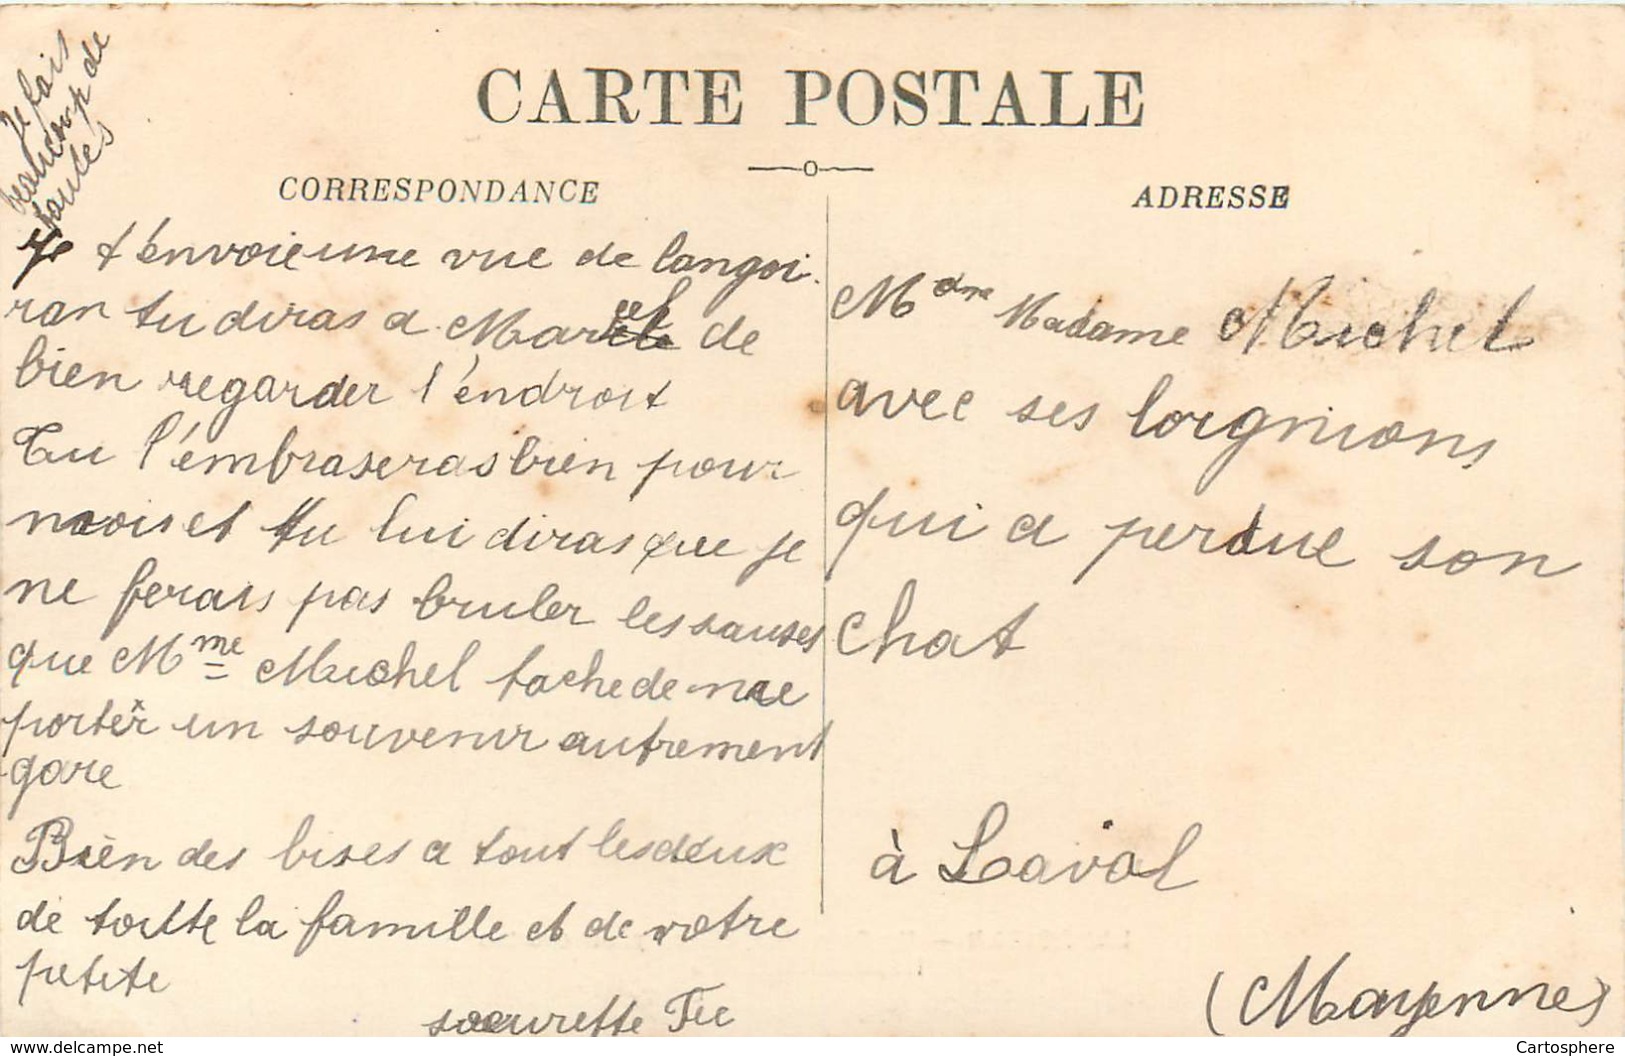 CARTE POSTALE
CORRESPONDANCE
Je fais
beaucoup de
fautes
Je t'envoie une vue de langoi
ran tu diras a Marcel de
bien regarder l'éndroit
Tu l'émbraseras bien pour
mois et tu lui diras que je
ne ferais pas bruler les sauses
que Mme Michel tache de me
porter un souvenir autrement
gare
Bien des bises a tout les deux
de toutte la famille et de votre
petite
soeurette Fee
ADRESSE
Mdme Madame Michel
avec ses lorgnions
qui a perdue son
chat
à Laval
(Mayenne)
www.delcampe.net
Cartosphere